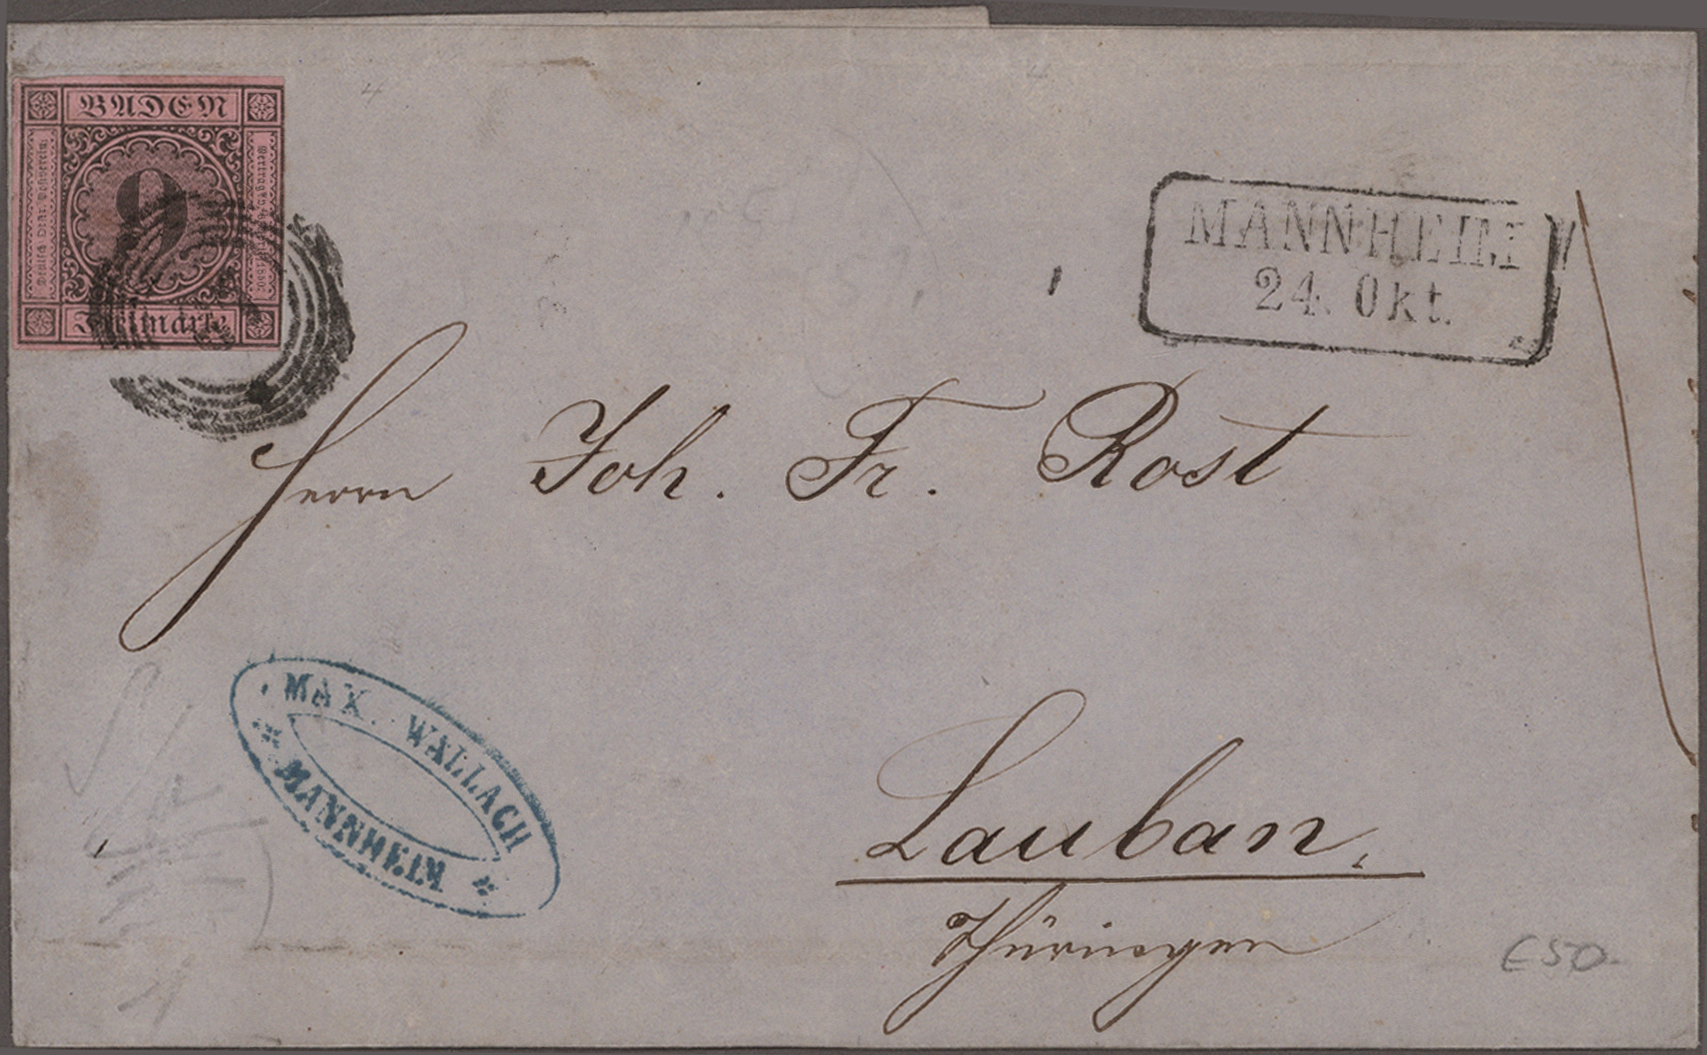 BADEN
9
Freimarke
MANNHEIM
24. Okt.
Herrn Joh. Fr. Rost
MAX. WALLACH
MANNHEIM
Lauban.
Thüringen
€50.-